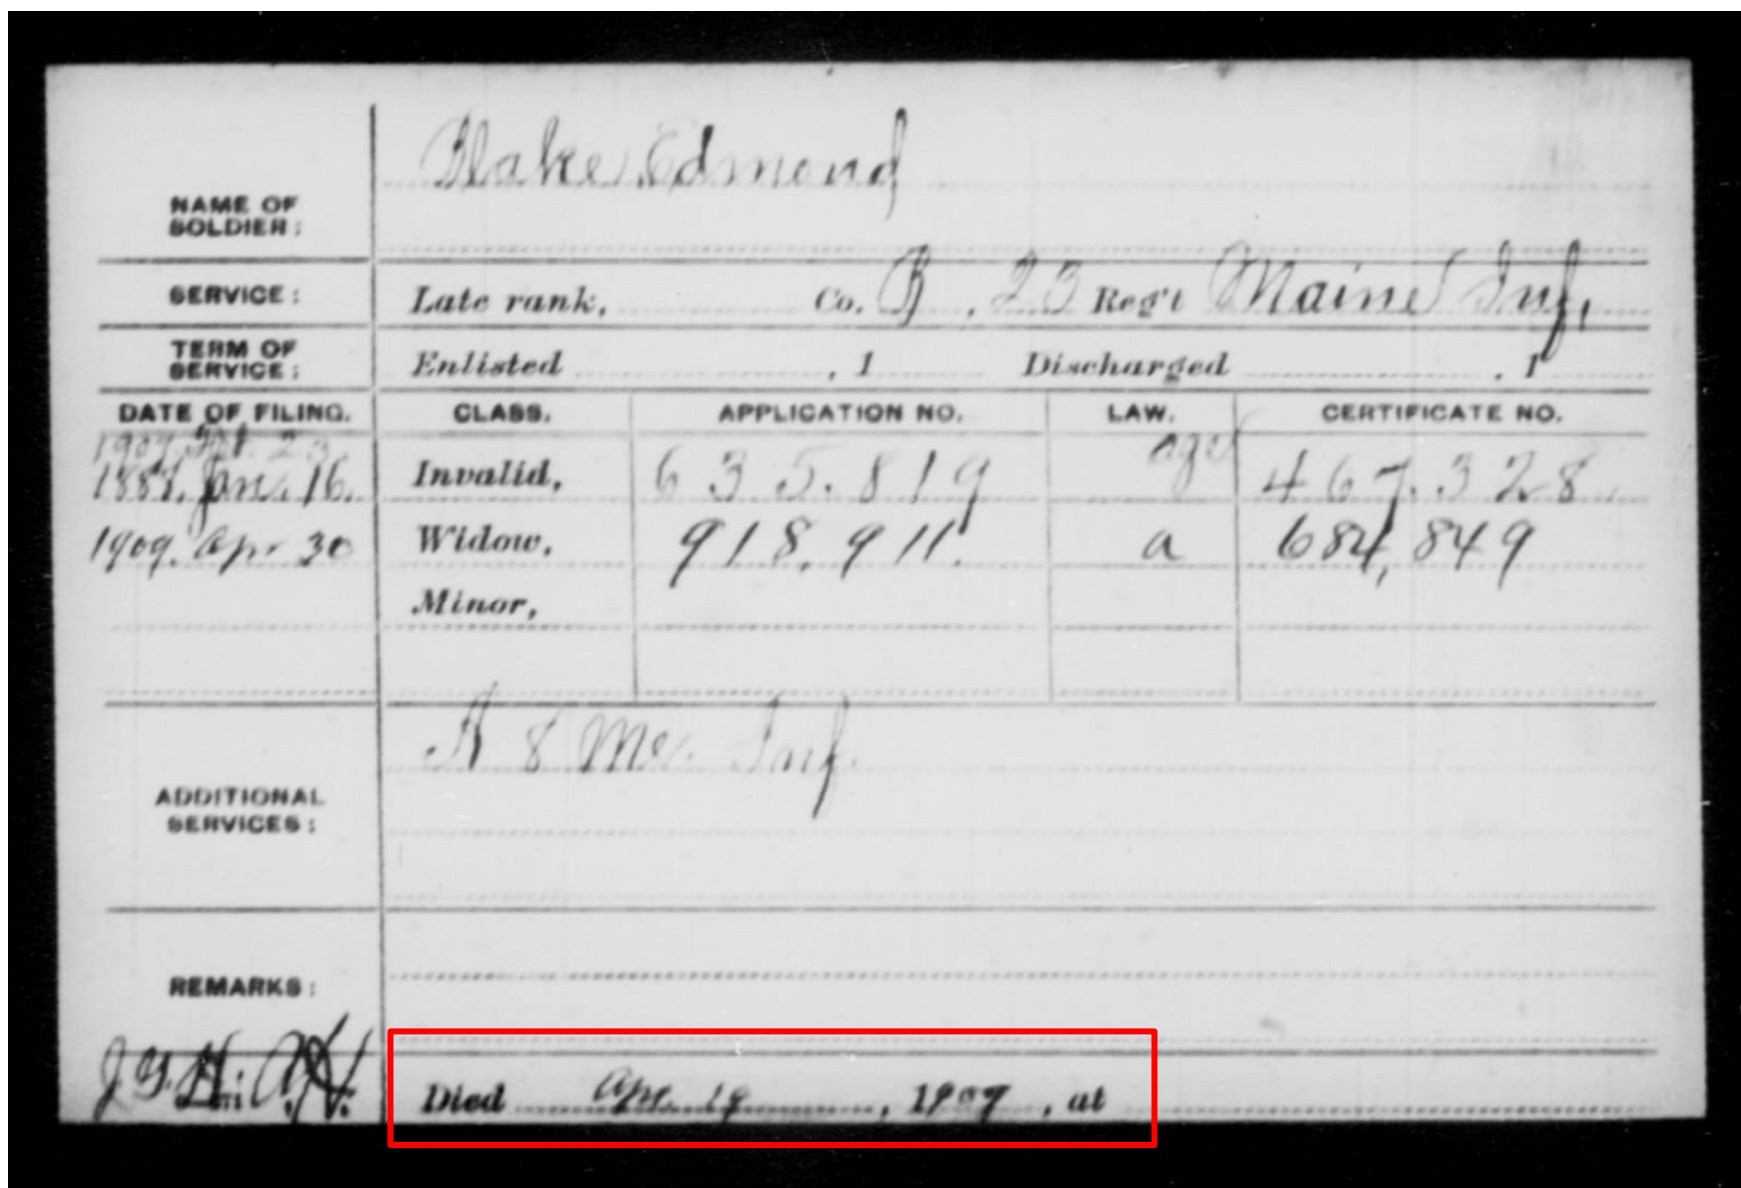 Blake, Edmond
NAME OF
SOLDIER:
SERVICE: Late rank, Co. B, 23 Reg't Maine Inf,
TERM OF
SERVICE: Enlisted , 1 Discharged , 1
DATE OF FILING. CLASS. APPLICATION NO. LAW. CERTIFICATE NO.
1907. 23. age
188 Jan. 16. Invalid, 635.819 467.328
1909. Apr 30 Widow, 918,911. a 684,849
Minor,
A 8 Me. Inf.
ADDITIONAL
SERVICES:
REMARKS:
Died Apr. 19, 1909, at